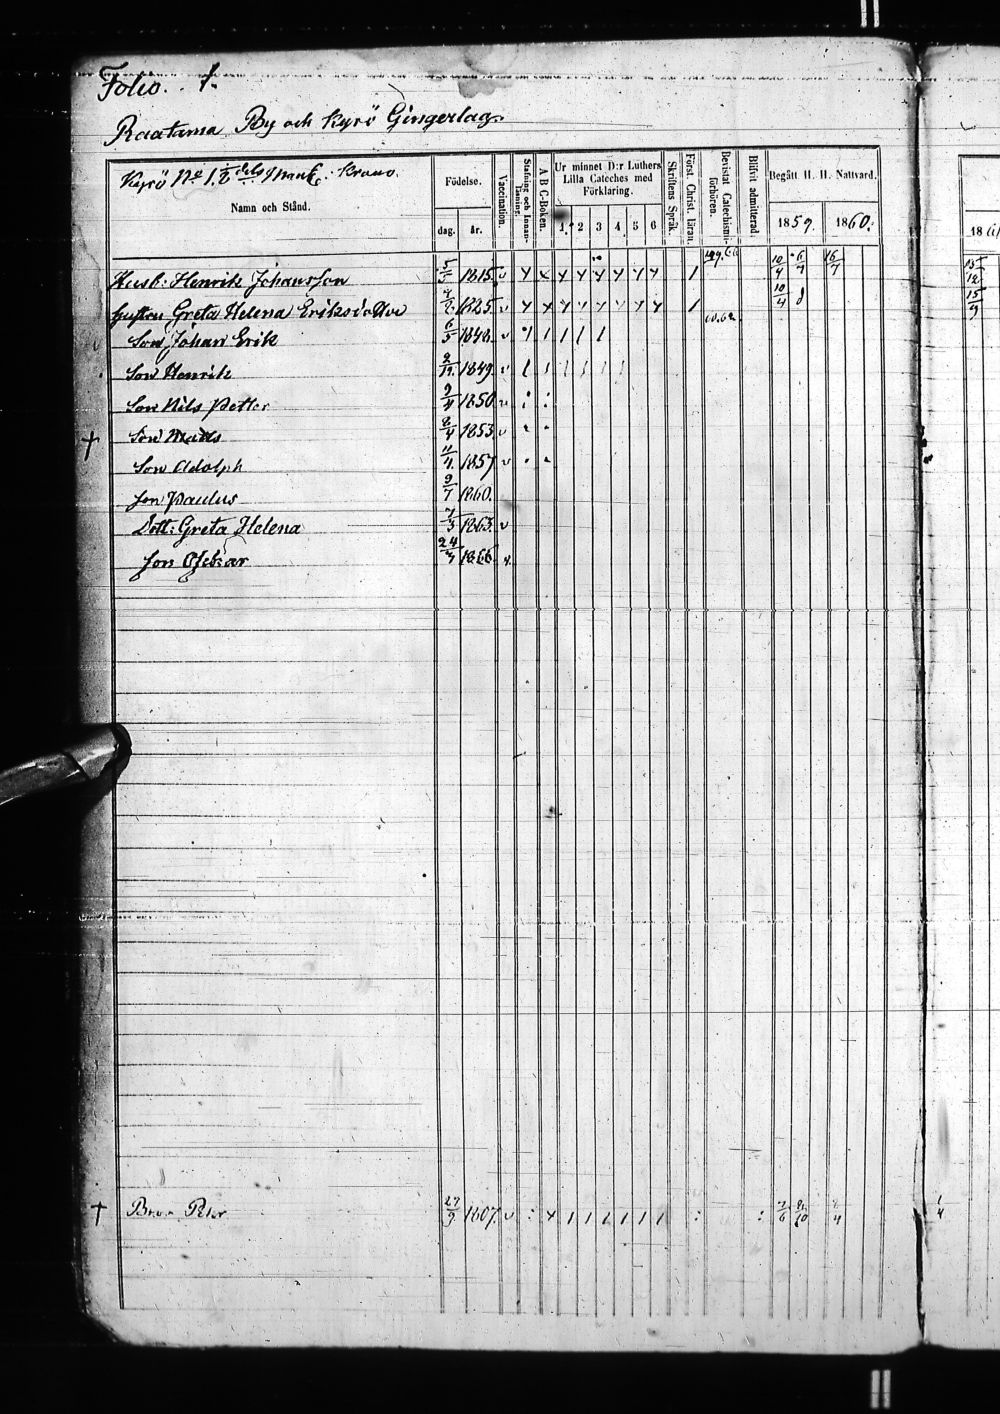 Folio. 1.
Raatama By och Kyrö Gingerlag.
Kyrö No 1. 1/2 dels Mank: Krono.
Namn och Stånd.
Födelse.
dag. år.
Vaccination.
Stafning och Innanläsning.
A B C-Boken.
Ur minnet D:r Luthers
Lilla Cateches med
Förklaring.
1 2 3 4 5 6
Skriftens Språk.
Först. Christ. läran.
Bevistat Catechismiförhören.
Blifvit admitterad.
Begått H. H. Nattvard.
1859. 1860.
Husb: Henrik Johansson 1815. 10/4 6/7 16/7
hustru Greta Helena Eriksdotter 1825. 10/4
Son Johan Erik 6/5 1848.
Son Henrik 1849.
Son Nils Petter 1850.
Son Mats 8/4 1853.
Son Adolph 1857
son Paulus 9/7 1860.
Dott: Greta Helena 7/3 1863.
son Oskar 1866
Bror Peter 27/9 1807.